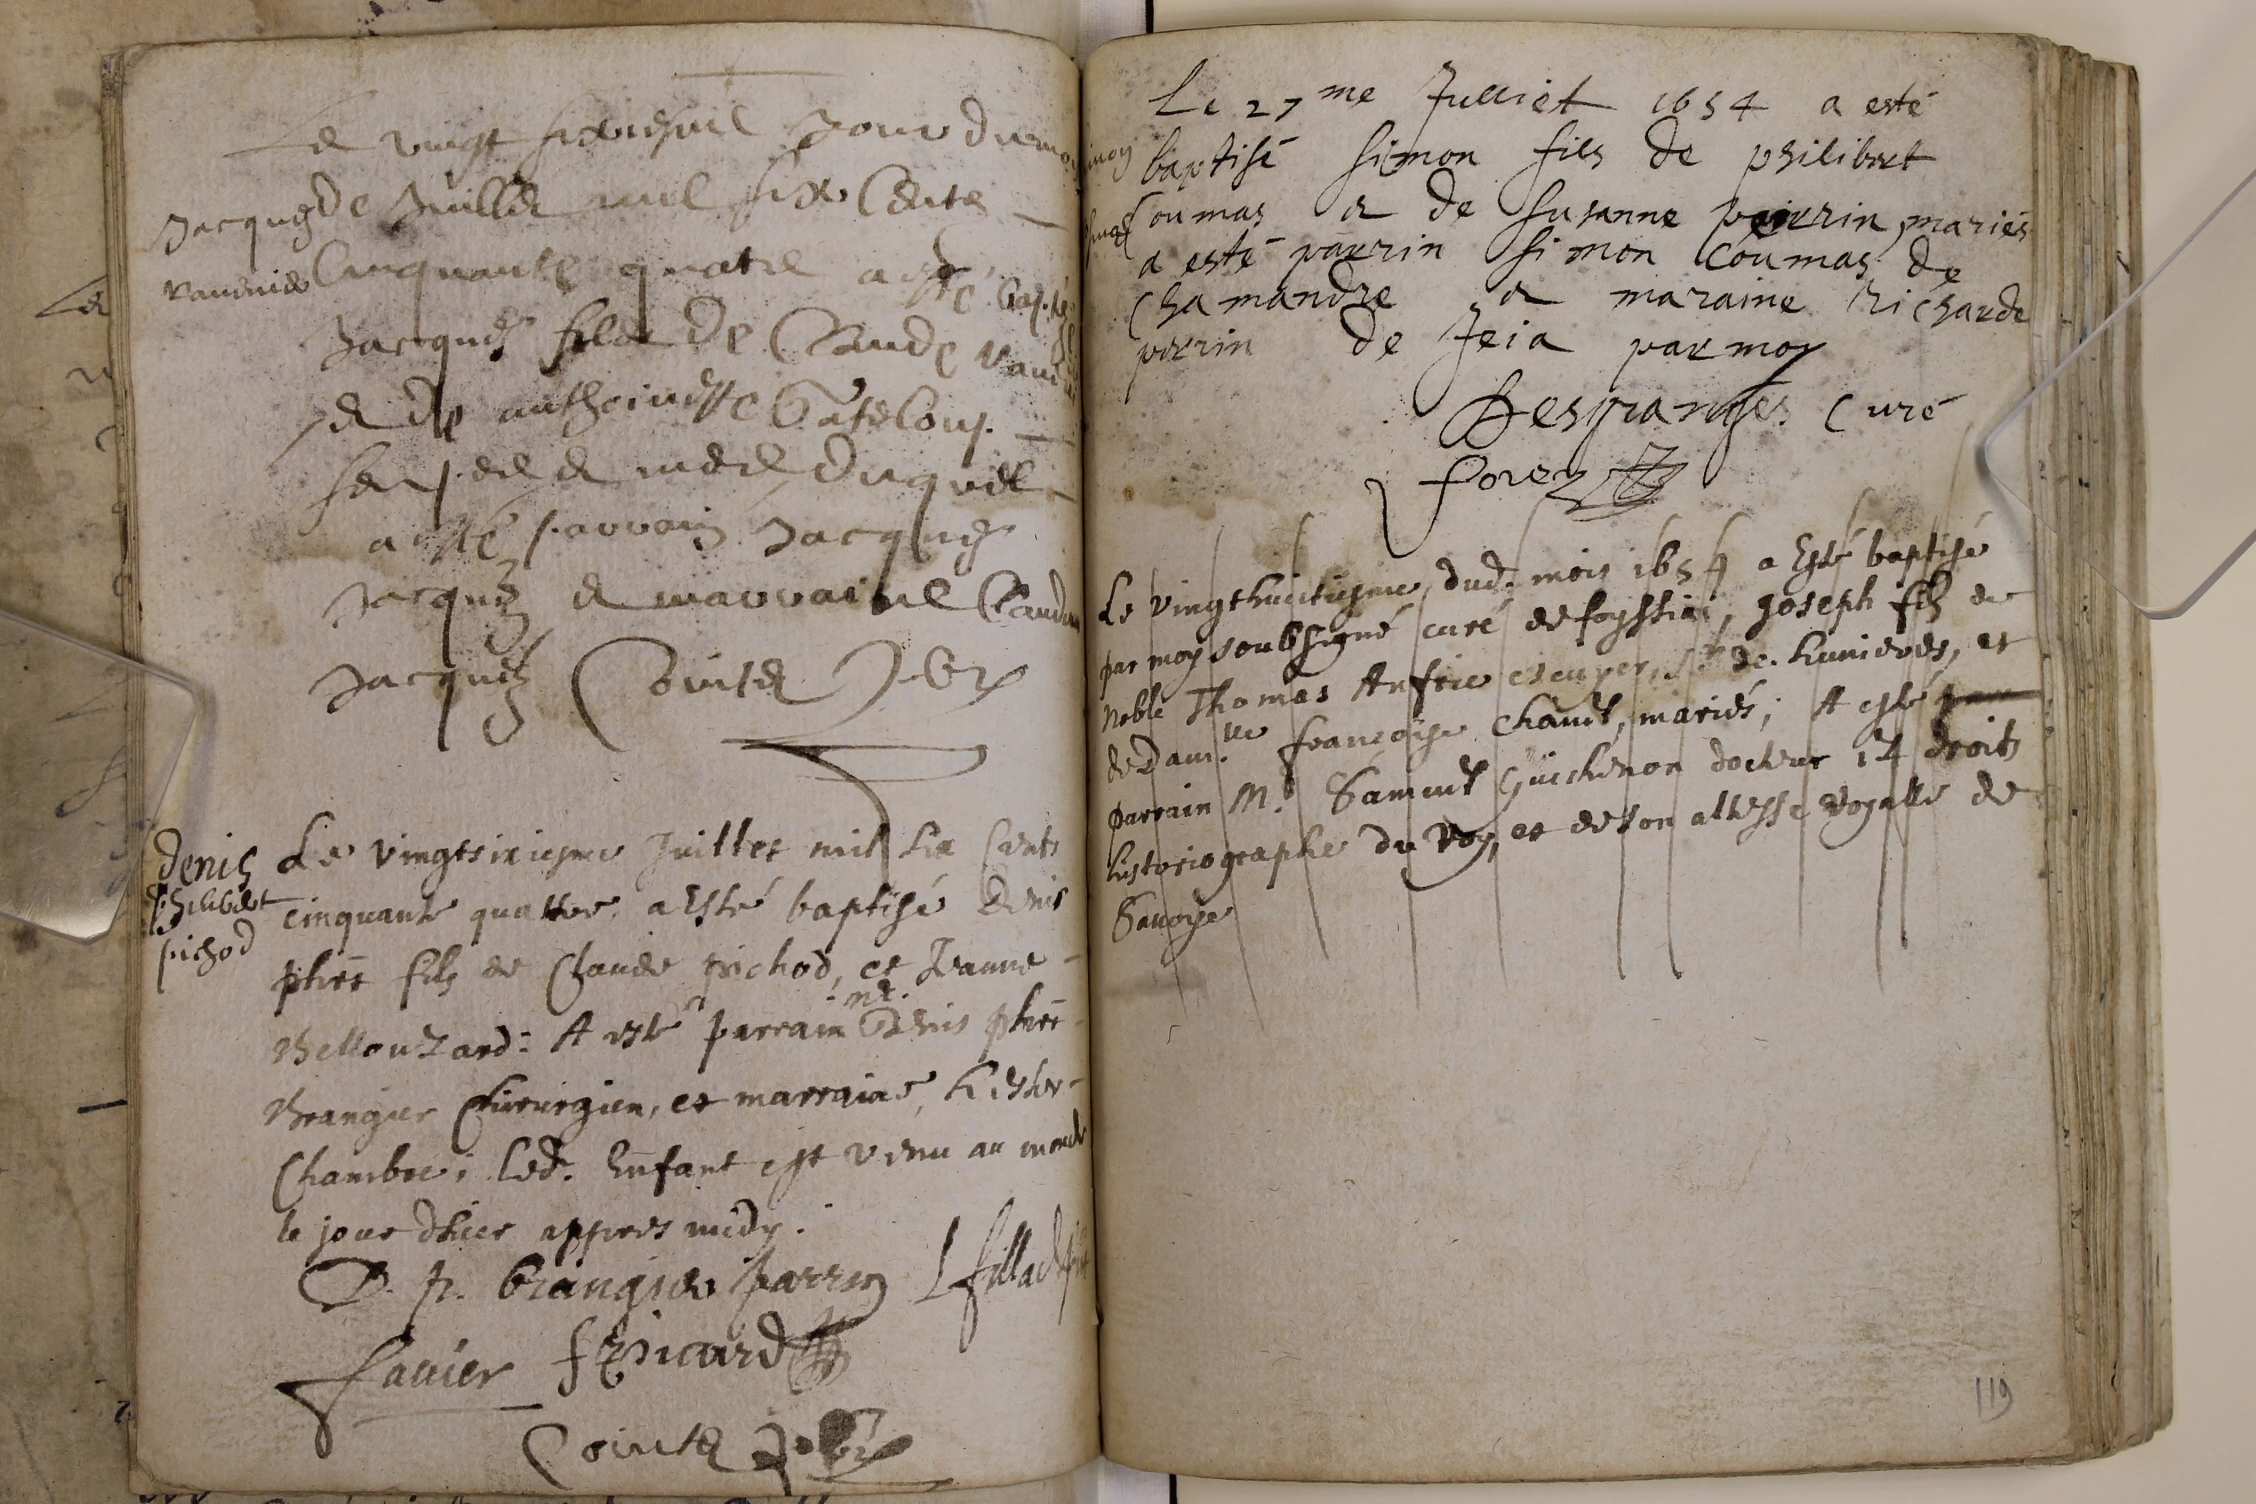 Le vingt sixiesme Jour du moy
Jacques
Vaudrier
de Juillet mil six Cents
Cinquante quatre a esté bap.té
Jacques filz de Claude
et de anthoinette Gateloup
ses pere et mere duquel
a esté parrain Jacques
Jacques et marraine Claudine
Jacques Cointet
denis
philibert
pichod
Le vingtsixiesme Juillet mil six Cents
cinquante quattre a Esté baptisé Denis
phirt fils de Claude pichod, et Jeanne
Mellouzard: A esté parrain Mr. Denis phirt
Brangier Chirurgien, et marraine, Hester
Chambre; Led. Enfant est venu au monde
le jour dhier appres midy.
D. p. brangier parrin
fauier
Cointet
Le 27me Julliet 1654 a esté
baptisé simon fils de philibert
Coumas et de susanne perrin mariés
a esté parrin simon Coumas de
Chamandre et maraine Richarde
perrin de Jeia par moy
Desgranges Curé
forez
Le vingthuictiesme dud. mois 1654 a Esté baptisé
par moy soubsigné curé de foyssia, Joseph filz de
Noble Thomas Anfrie escuyer, sr de. humieres, et
de Dam.lle francoise Chanel, mariés; A esté
parrain Mr. Samuel Guichenon docteur es droits
historiographe du Roy, et de son altesse royalle de
Sauoye
119